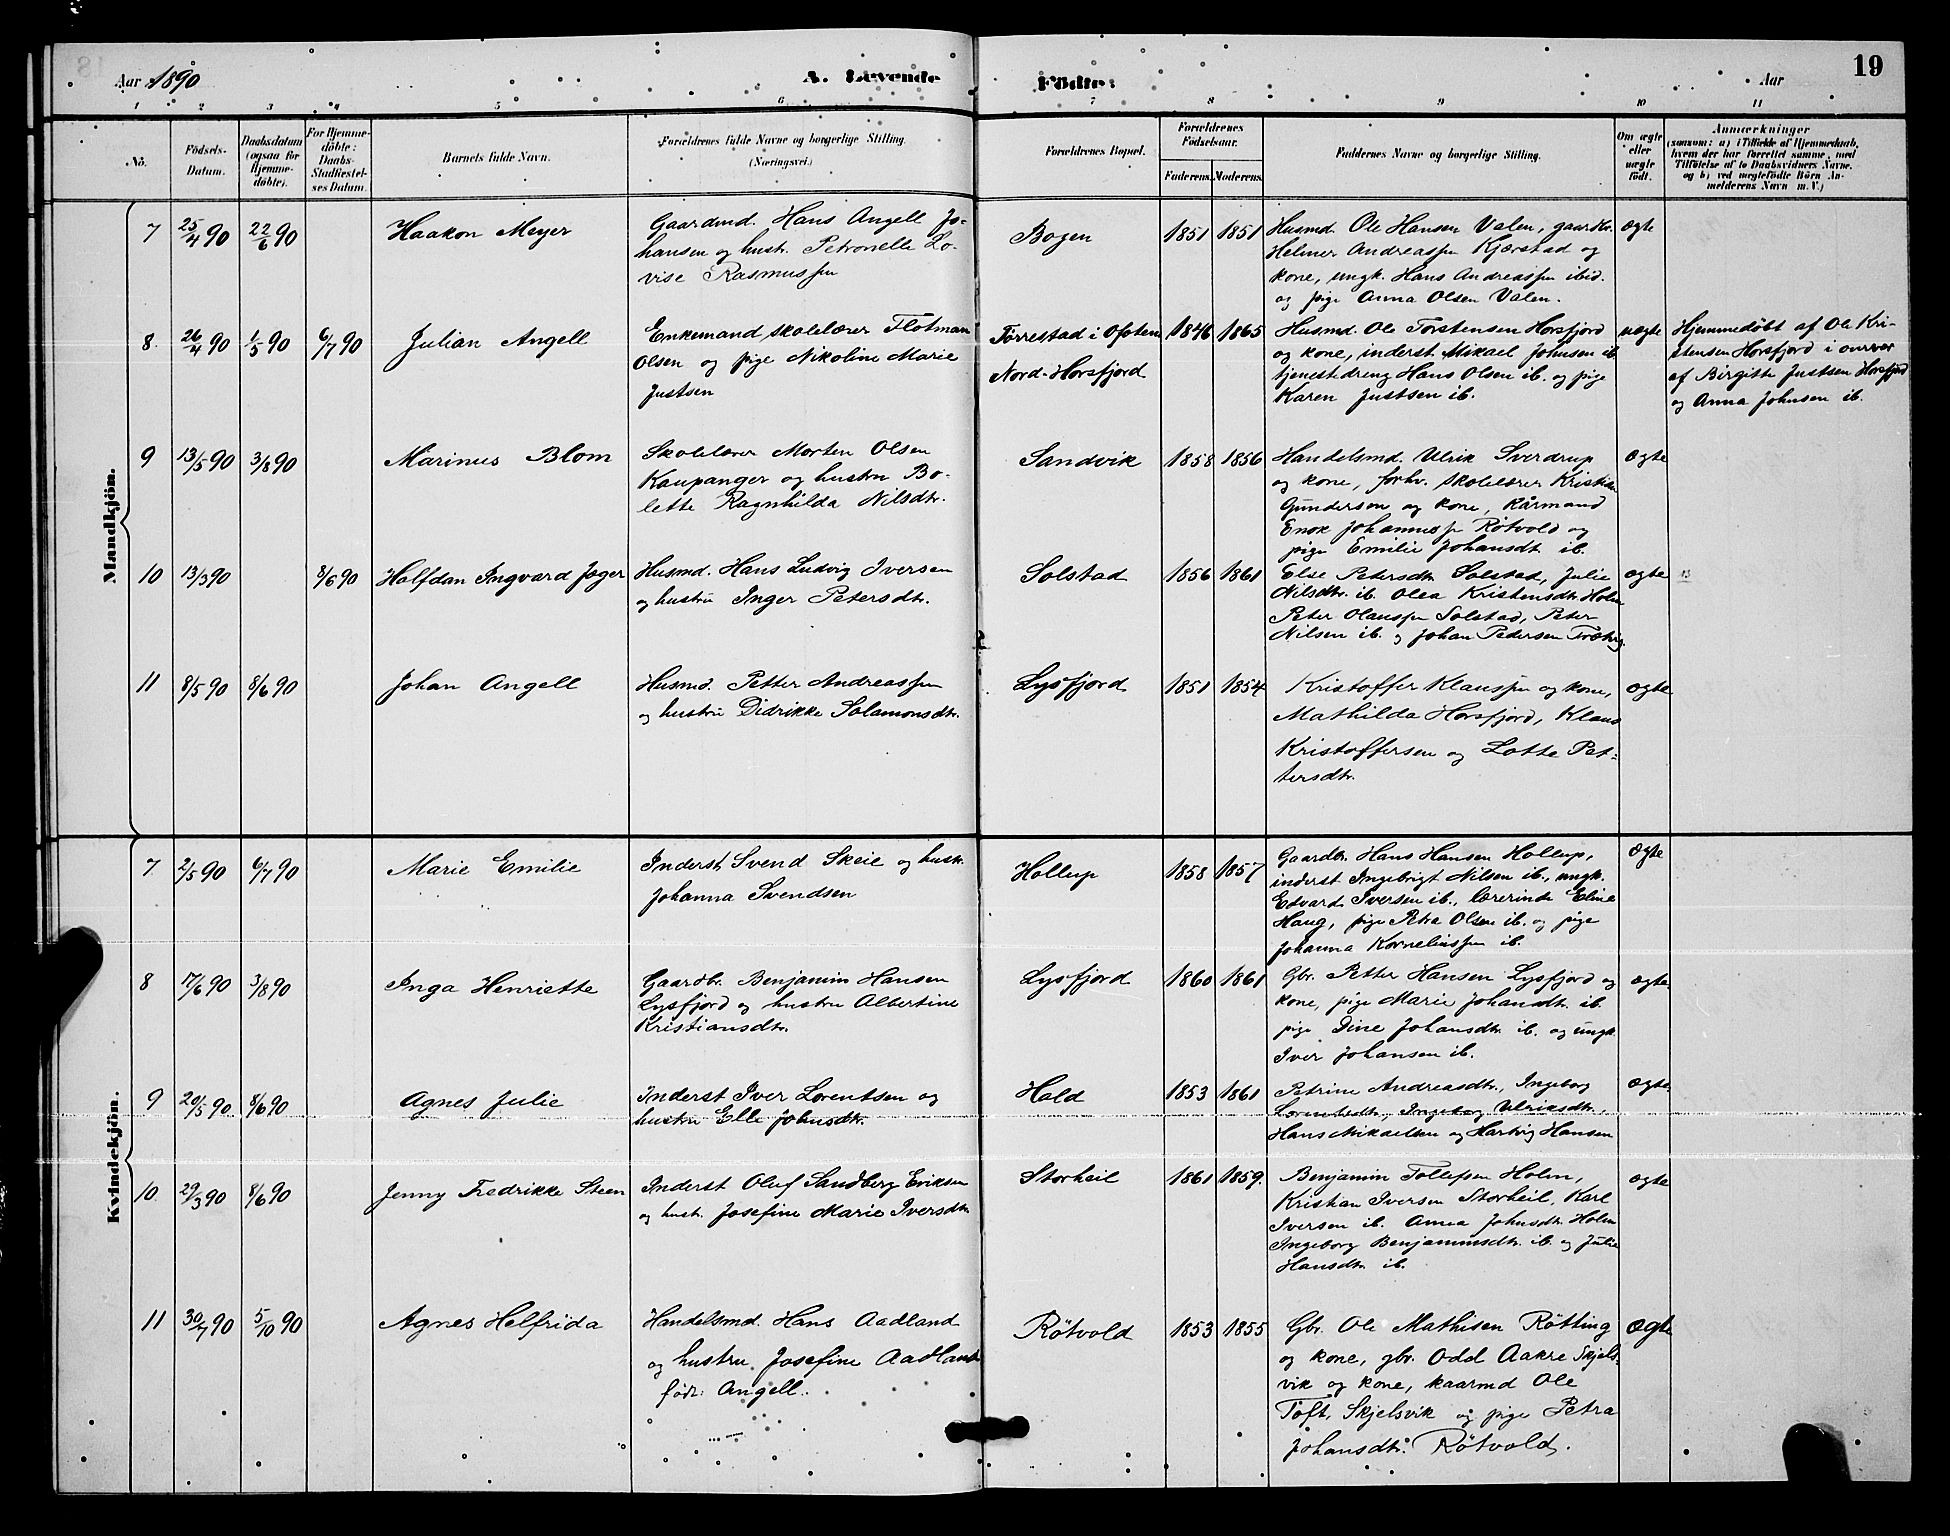 Aar 1890
A. Levende Födte:
Aar
19
1 2 3 4 5 6 7 8 9 10 11
No.
Födsels-Datum.
Daabsdatum (ogsaa for Hjemme-döbte).
For Hjemme-döbte: Daabs-Stadfæstel-ses Datum.
Barnets fulde Navn.
Forældrenes fulde Navne og borgerlige Stilling.
(Næringsvei.)
Forældrenes Bopæl.
Forældrenes Födselsaar.
Faderens. Moderens.
Faddernes Navne og borgerlige Stilling.
Om ægte eller uægte födt.
Anmærkninger
(saasom: a) i Tilfælde af Hjemmedaab, hvem der har forrettet samme, med Tilföielse af to Daabsvidners Navne. og b) ved uægtefödte Börn Anmelderens Navn m. V.)
Mandkjön.
7 25/4 90 22/6 90 Haakon Meyer
Gaardmd. Hans Angell Jo-
hansen og hustr. Petronelle Lo-
vise Rasmussen
Bogen 1851 1851
Husmd. Ole Hansen Valen, gaardbr.
Helmer Andreassen Kjærstad og
kone, ungk. Hans Andreassen ibid.
og pige Anna Olsen Valen.
ægte
8. 26/4 90 1/5 90 6/7 90 Julian Angell
Enkemand skolelærer Flotman
Olsen og pige Nikoline Marie
Justsen
Torrestad i Ofoten
Nord-Horsfjord
1846 1865
Husmd. Ole Torstensen Horsfjord
og kone, inderst Mikael Johnsen ib.
tjenestedreng Hans Olsen ib. og pige
Karen Justsen ib.
uægte
Hjemmedöbt af Ole Kri-
stensen Horsfjord i overvær
af Birgitte Justsen Horsfjord
og Anna Johnsen ib.
9 13/5 90 3/8 90 Marinus Blom
Skolelærer Morten Olsen
Kaupanger og hustru Bo-
lette Ragnhilda Nilsdtr.
Sandvik 1858 1856
Handelsmd. Ulrik Sverdrup
og kone, forhv. skolelærer Kristian
Gunderson og kone, Kårmand
Enok Johannessen Rötvold og
pige Emilie Johansdtr. ib.
ægte
10 13/3 90 8/6 90 Halfdan Ingvard Jæger
Husmd. Hans Ludvig Iversen
og hustru Inger Petersdtr.
Solstad 1856 1861
Else Petersdtr. Solstad, Julie
Nilsdtr. ib. Olea Kristensdtr. Holm
Peter Olaussen Solstad, Peter
Nilsen ib. og Johan Pedersen
ægte
11 8/5 90 8/6 90 Johan Angell
Husmd. Petter Andreassen
og hustru Didrikke Salamonsdtr.
Lysfjord 1851 1854
Kristoffer Klaussen og kone,
Mathilda Horsfjord, Klaus
Kristoffersen og Lotte Pet-
tersdtr.
ægte
Kvindekjön.
7 2/5 90 6/7 90 Marie Emilie
Inderst Svend Skeie og hustr.
Johanna Svendsen
Hollup 1858 1857
Gaardbr. Hans Hansen Hollup,
inderst Ingebrigt Nilsen ib., ungk.
Edvard Iversen ib., lærerinde Eline
Haug, pige Petra Olsen ib. og pige
Johanna Korneliussen ib.
ægte
8 17/6 90 3/8 90 Inga Henriette
Gaardbr. Benjamin Hansen
Lysfjord og hustru Albertine
Kristiansdtr.
Lysfjord 1860 1861
Gbr. Petter Hansen Lysfjord og
kone, pige Marie Johansdtr. ib.
pige Dine Johansdtr. ib. og ungk.
Iver Johansen ib.
ægte
9 20/5 90. 8/6 90 Agnes Julie
Inderst Iver Lorentsen og
hustru Elle Johnsdtr.
Hald 1853 1861
Petrine Andreasdtr., Ingeborg
Lorentsdtr., Ingeborg Ulriksdtr.
Hans Mikaelsen og Hartvig Hansen
ægte
10. 29/3 90 8/6 90 Jenny Fredrikke Steen
Inderst Oluf Sandberg Eriksen
og hustr. Josefine Marie Iversdtr.
Storheil 1861 1859.
Benjamin Tollefsen Holm,
Kristian Iversen Storheil, Karl
Iversen ib. Anna Johnsdtr. Holm
Ingeborg Benjaminsdtr. ib. og Julie
Hansdtr. ib.
ægte
11 30/7 90 5/10 90 Agnes Helfrida
Handelsmd. Hans Aadland
og hustru Josefine Aadland
föd: Angell.
Rötvold 1853 1855
Gbr. Ole Mathisen Rötting
og kone, gbr. Odd Aakre Skjels-
vik og kone, kaarmd Ole
Toft, Skjelsvik og pige Petra
Johansdtr. Rötvold.
ægte